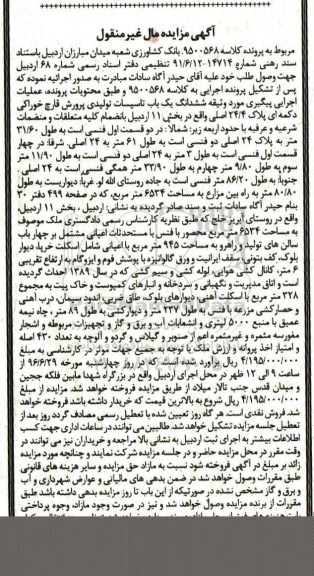 آگهی مزایده مال غیرمنقول
مربوط به پرونده کلاسه ۹۵۰۰۵۶۸ بانک کشاورزی شعبه میدان مبارزان اردبیل باستناد
سند رهنی شماره ۱۴۷۱۴-۹۱/۶/۱۲ تنظیمی دفتر اسناد رسمی شماره ۶۸ اردبیل
جهت وصول طلب خود علیه آقای حیدر آگاه سادات مبادرت به صدور اجرائیه نموده که
پس از تشکیل پرونده اجرایی به کلاسه ۹۵۰۰۵۶۸ و طبق محتویات پرونده، عملیات
اجرایی پیگیری مورد وثیقه ششدانگ یک باب تاسیسات تولیدی پرورش قارچ خوراکی
دکمه ای پلاک ۲۴/۴ اصلی واقع در بخش ۱۱ اردبیل بانضمام کلیه متعلقات و منضمات
شرعیه و عرفیه با حدود اربعه زیر: شمالا: در دو قسمت اول فنسی است به طول ۳۱/۶۰
متر به پلاک ۲۴ اصلی دو فنسی است به طول ۶۱ متر به ۲۴ اصلی. شرقا: در چهار
قسمت اول فنسی است به طول ۳ متر به ۲۴ اصلی دو فنسی است به طول ۱۱/۹۰ متر
سوم به طول ۹/۸۰ متر چهارم به طول ۳۳/۹۰ متر همگی فنسی است به ۲۴ اصلی.
جنوبا: به طول ۸۶/۲۰ متر فنسی است به جاده روستای الله لو. غربا: دیواریست به طول
۸۰/۸۰ متر به راه بین مزارع به مساحت ۶۵۳۴ متر مربع، که در صفحه ۴۹۹ دفتر ۳۰
بنام حیدر آگاه سادات ثبت و سند صادر گردیده به نشانی: اردبیل، بخش ۱۱ اردبیل،
واقع در روستای ایزو خلج که طبق نظریه کارشناس رسمی دادگستری ملک موصوف
به مساحت ۶۵۳۴ متر مربع محصور با فنس با مستحدثات اعیانی مشتمل بر چهار باب
سالن های تولید و راهرو به مساحت ۹۴۵ متر مربع با اعیانی شامل اسکلت خرپا، دیوار
بلوک، کف بتونی، سقف ایرانیت و ورق گالوانیزه با پوشش فوم و ایزوگام به ارتفاع تقریبی
۶ متر، کانال کشی هوایی، لوله کشی و سیم کشی که در سال ۱۳۸۹ احداث گردیده
است و اتاق مدیریت و نگهبانی و سردخانه و انبارهای کمپوست و خاک پیت به مجموع
۳۲۸ متر مربع با اسکلت آهنی، دیوارهای بلوک، طاق ضربی، اندود سیمان، درب آهنی
و حصارکشی مزرعه با فنس به طول ۲۳۷ متر و دیوارکشی به طول ۸۹ متر، چاه نیمه
عمیق با منبع ۵۰۰۰ لیتری و انشعابات آب و برق و گاز و تجهیزات مربوطه و اشجار
مغروسه مثمره و غیرمثمره اعم از صنوبر و گیلاس و گردو و آلوچه به تعداد ۴۳۰ اصله
و امتیاز اخذ پروانه و ارزش ملک با توجه به جمیع جهات موثر در کارشناسی به مبلغ
۴/۱۹۵/۰۰۰/۰۰۰ ریال برآورد شده است که در روز چهارشنبه مورخه ۹۶/۶/۲۹ از
ساعت ۹ الی ۱۲ ظهر در محل اجرای اردبیل واقع در بزرگراه شهدا مابین فلکه ججین
و میدان قدس جنب تالار میلاد از طریق مزایده فروخته خواهد شد. مزایده از مبلغ
۴/۱۹۵/۰۰۰/۰۰۰ ریال شروع به بالاترین قیمت که خریدار داشته باشد فروخته خواهد
شد. فروش نقدی است. هر گاه روز تعیین شده با تعطیل رسمی مصادف گردد روز بعد از
تعطیل جلسه مزایده تشکیل خواهد شد. طالبین می توانند در ساعات اداری جهت کسب
اطلاعات بیشتر به اجرای ثبت اردبیل به نشانی بالا مراجعه و خریداران نیز می توانند در
وقت مقرر در محل مزایده حاضر و در جلسه مزایده شرکت نمایند و چنانچه مورد مزایده
زائد بر مبلغ در آگهی فروخته شود نسبت به مازاد حق مزایده و سایر هزینه های قانونی
طبق مقررات وصول خواهد شد در ضمن بدهی های مالیاتی و عوارض شهرداری و آب
و برق و گاز مشخص نشده در صورتیکه از این باب تا روز مزایده بدهی داشته باشد طبق
مقررات از برنده مزایده وصول خواهد شد و نیز در صورت وجود مازاد، وجوه پرداختی